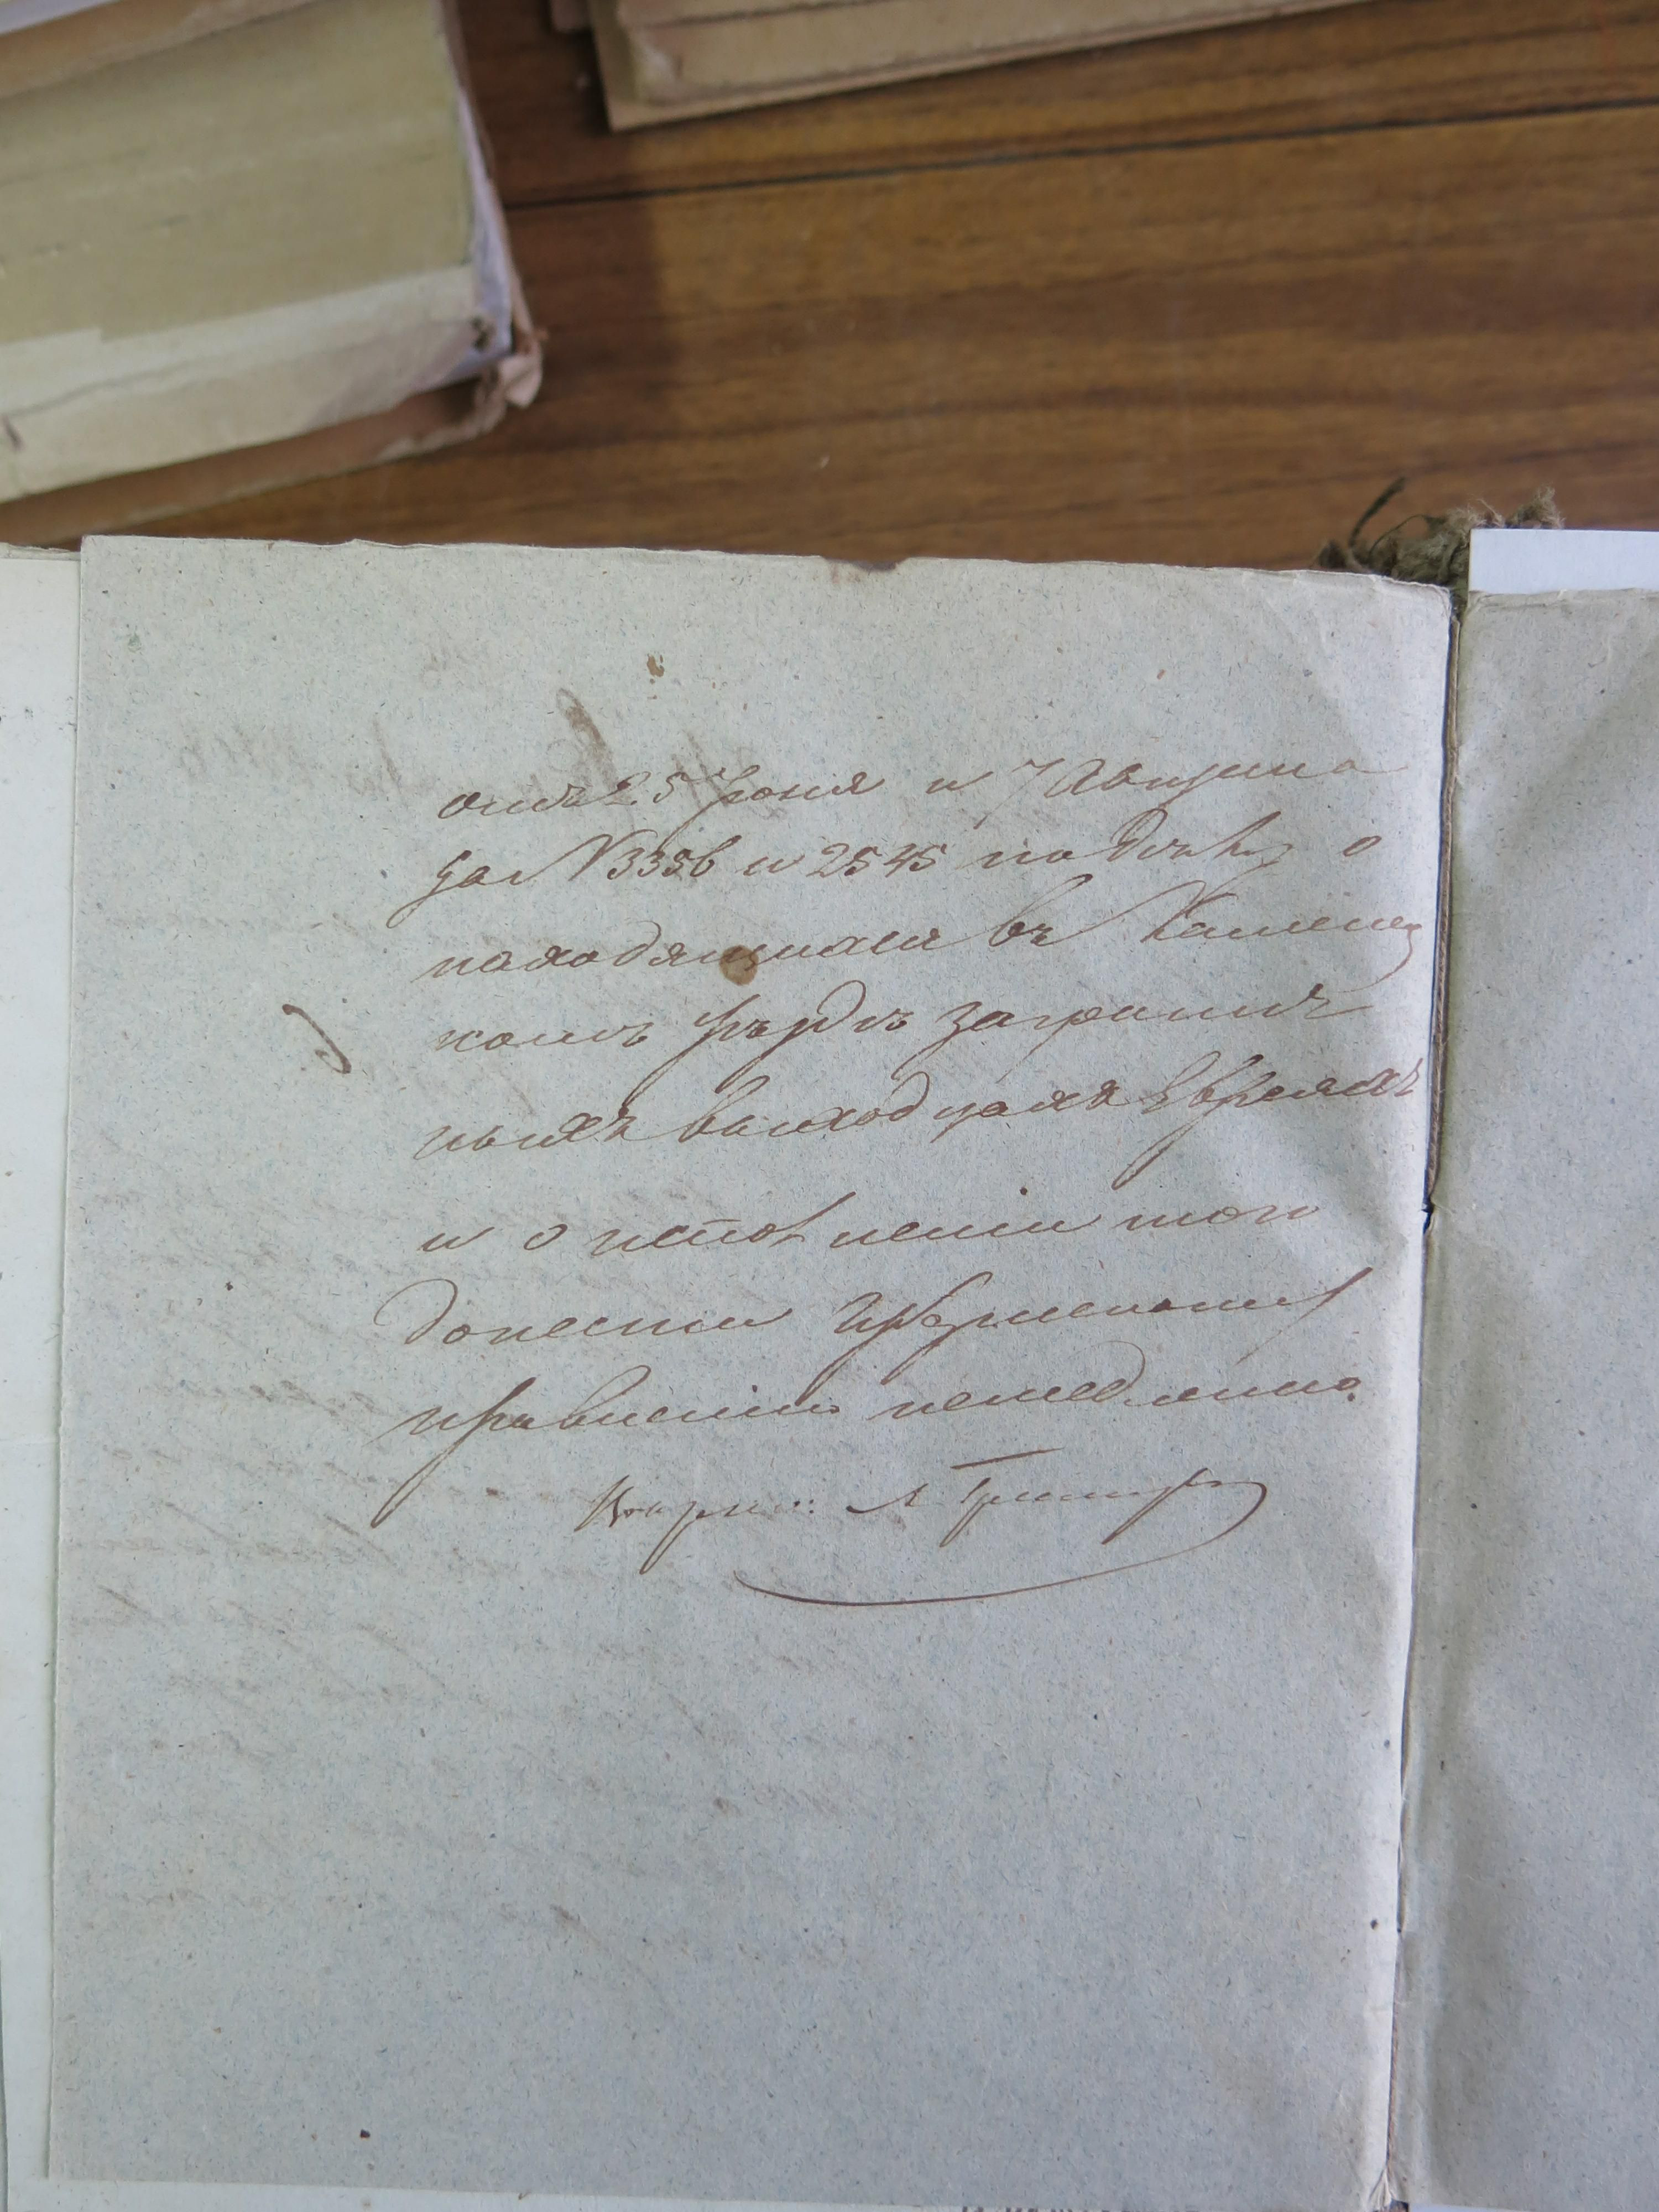 отъ 25 Іюня и 7 Августа
за № 3356 и 2545 по дѣлу о
находящихся въ Каменец
комъ уѣздѣ заграничъ
ныхъ выходцахъ Евреяхъ
и о исполненіи того
донести Губернскому
правленію немедленно.